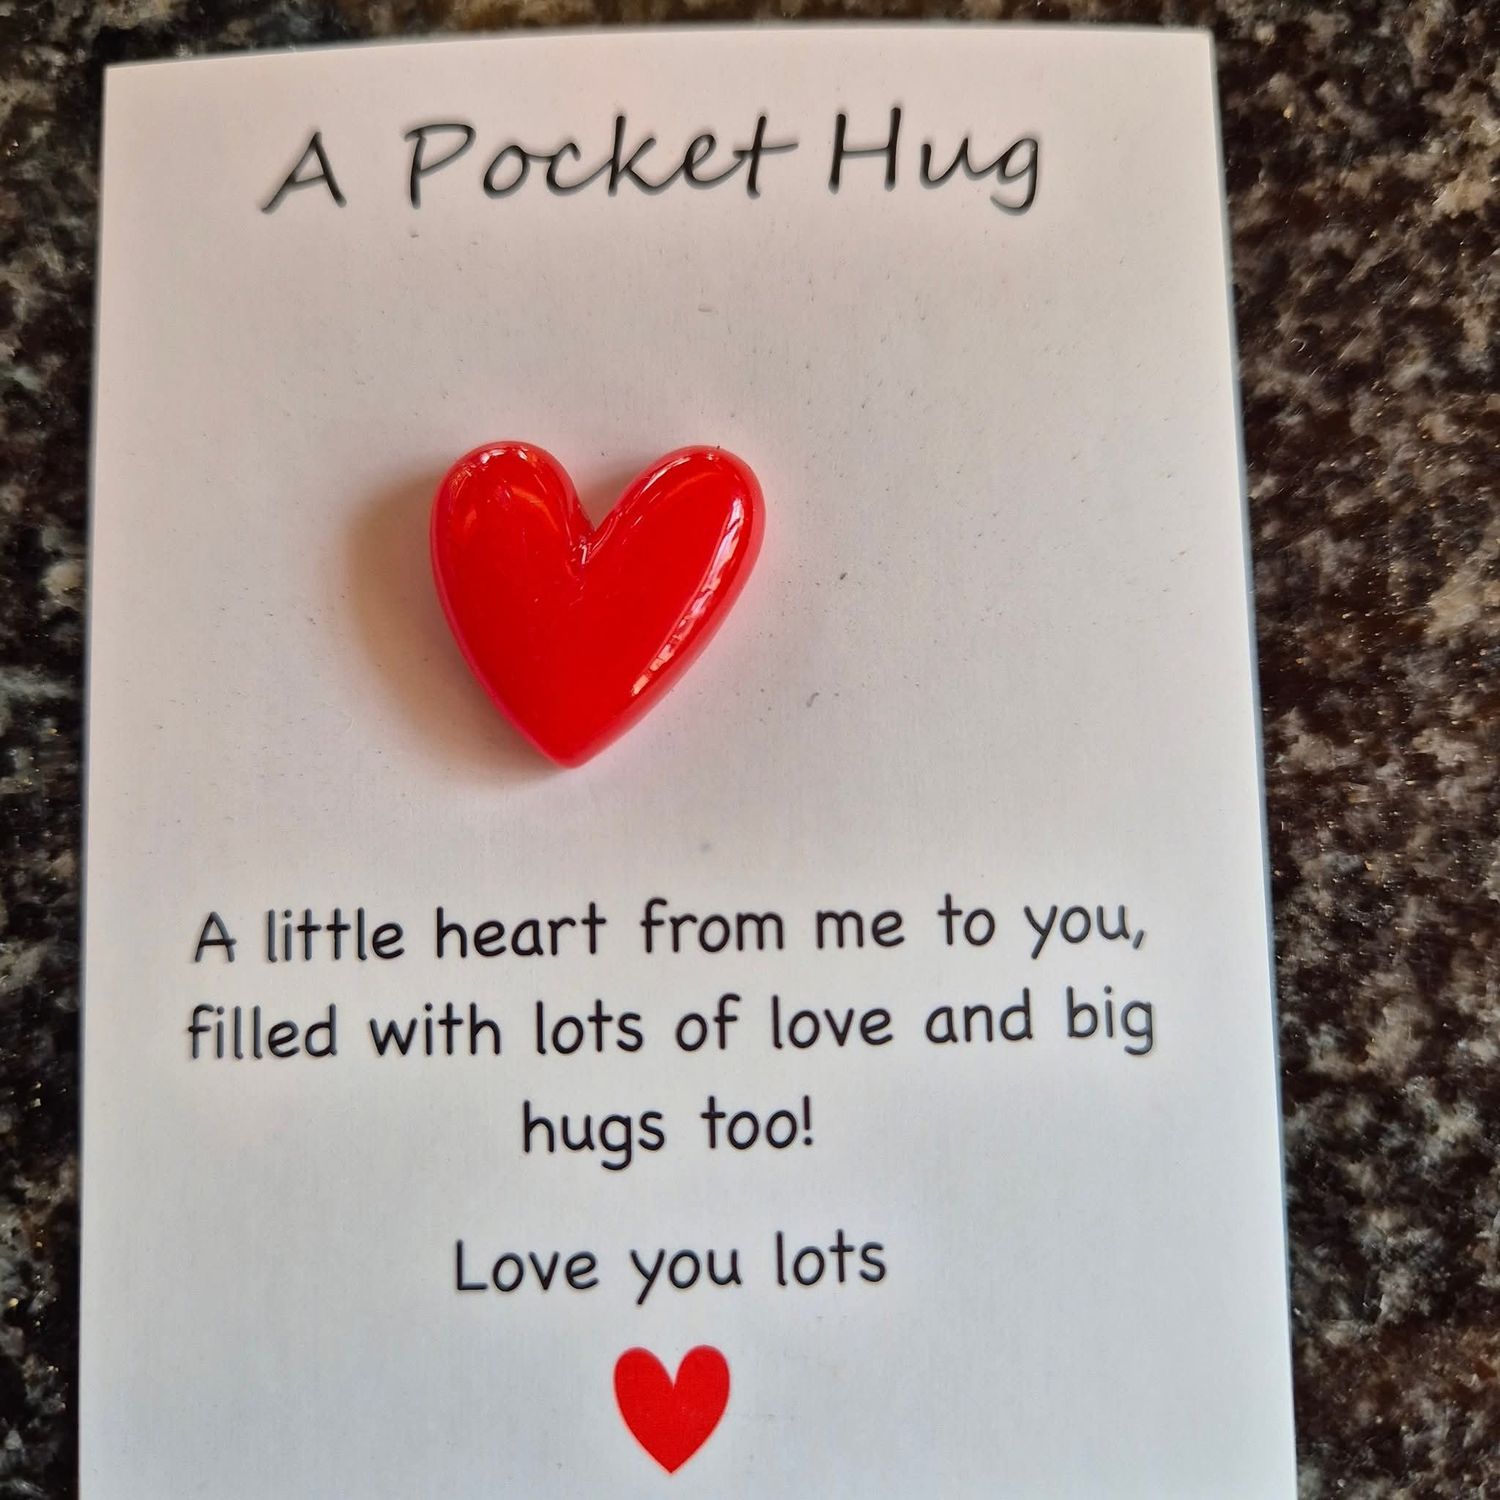 A Pocket Hug
A little heart from me to you,
filled with lots of love and big
hugs too!
Love you lots